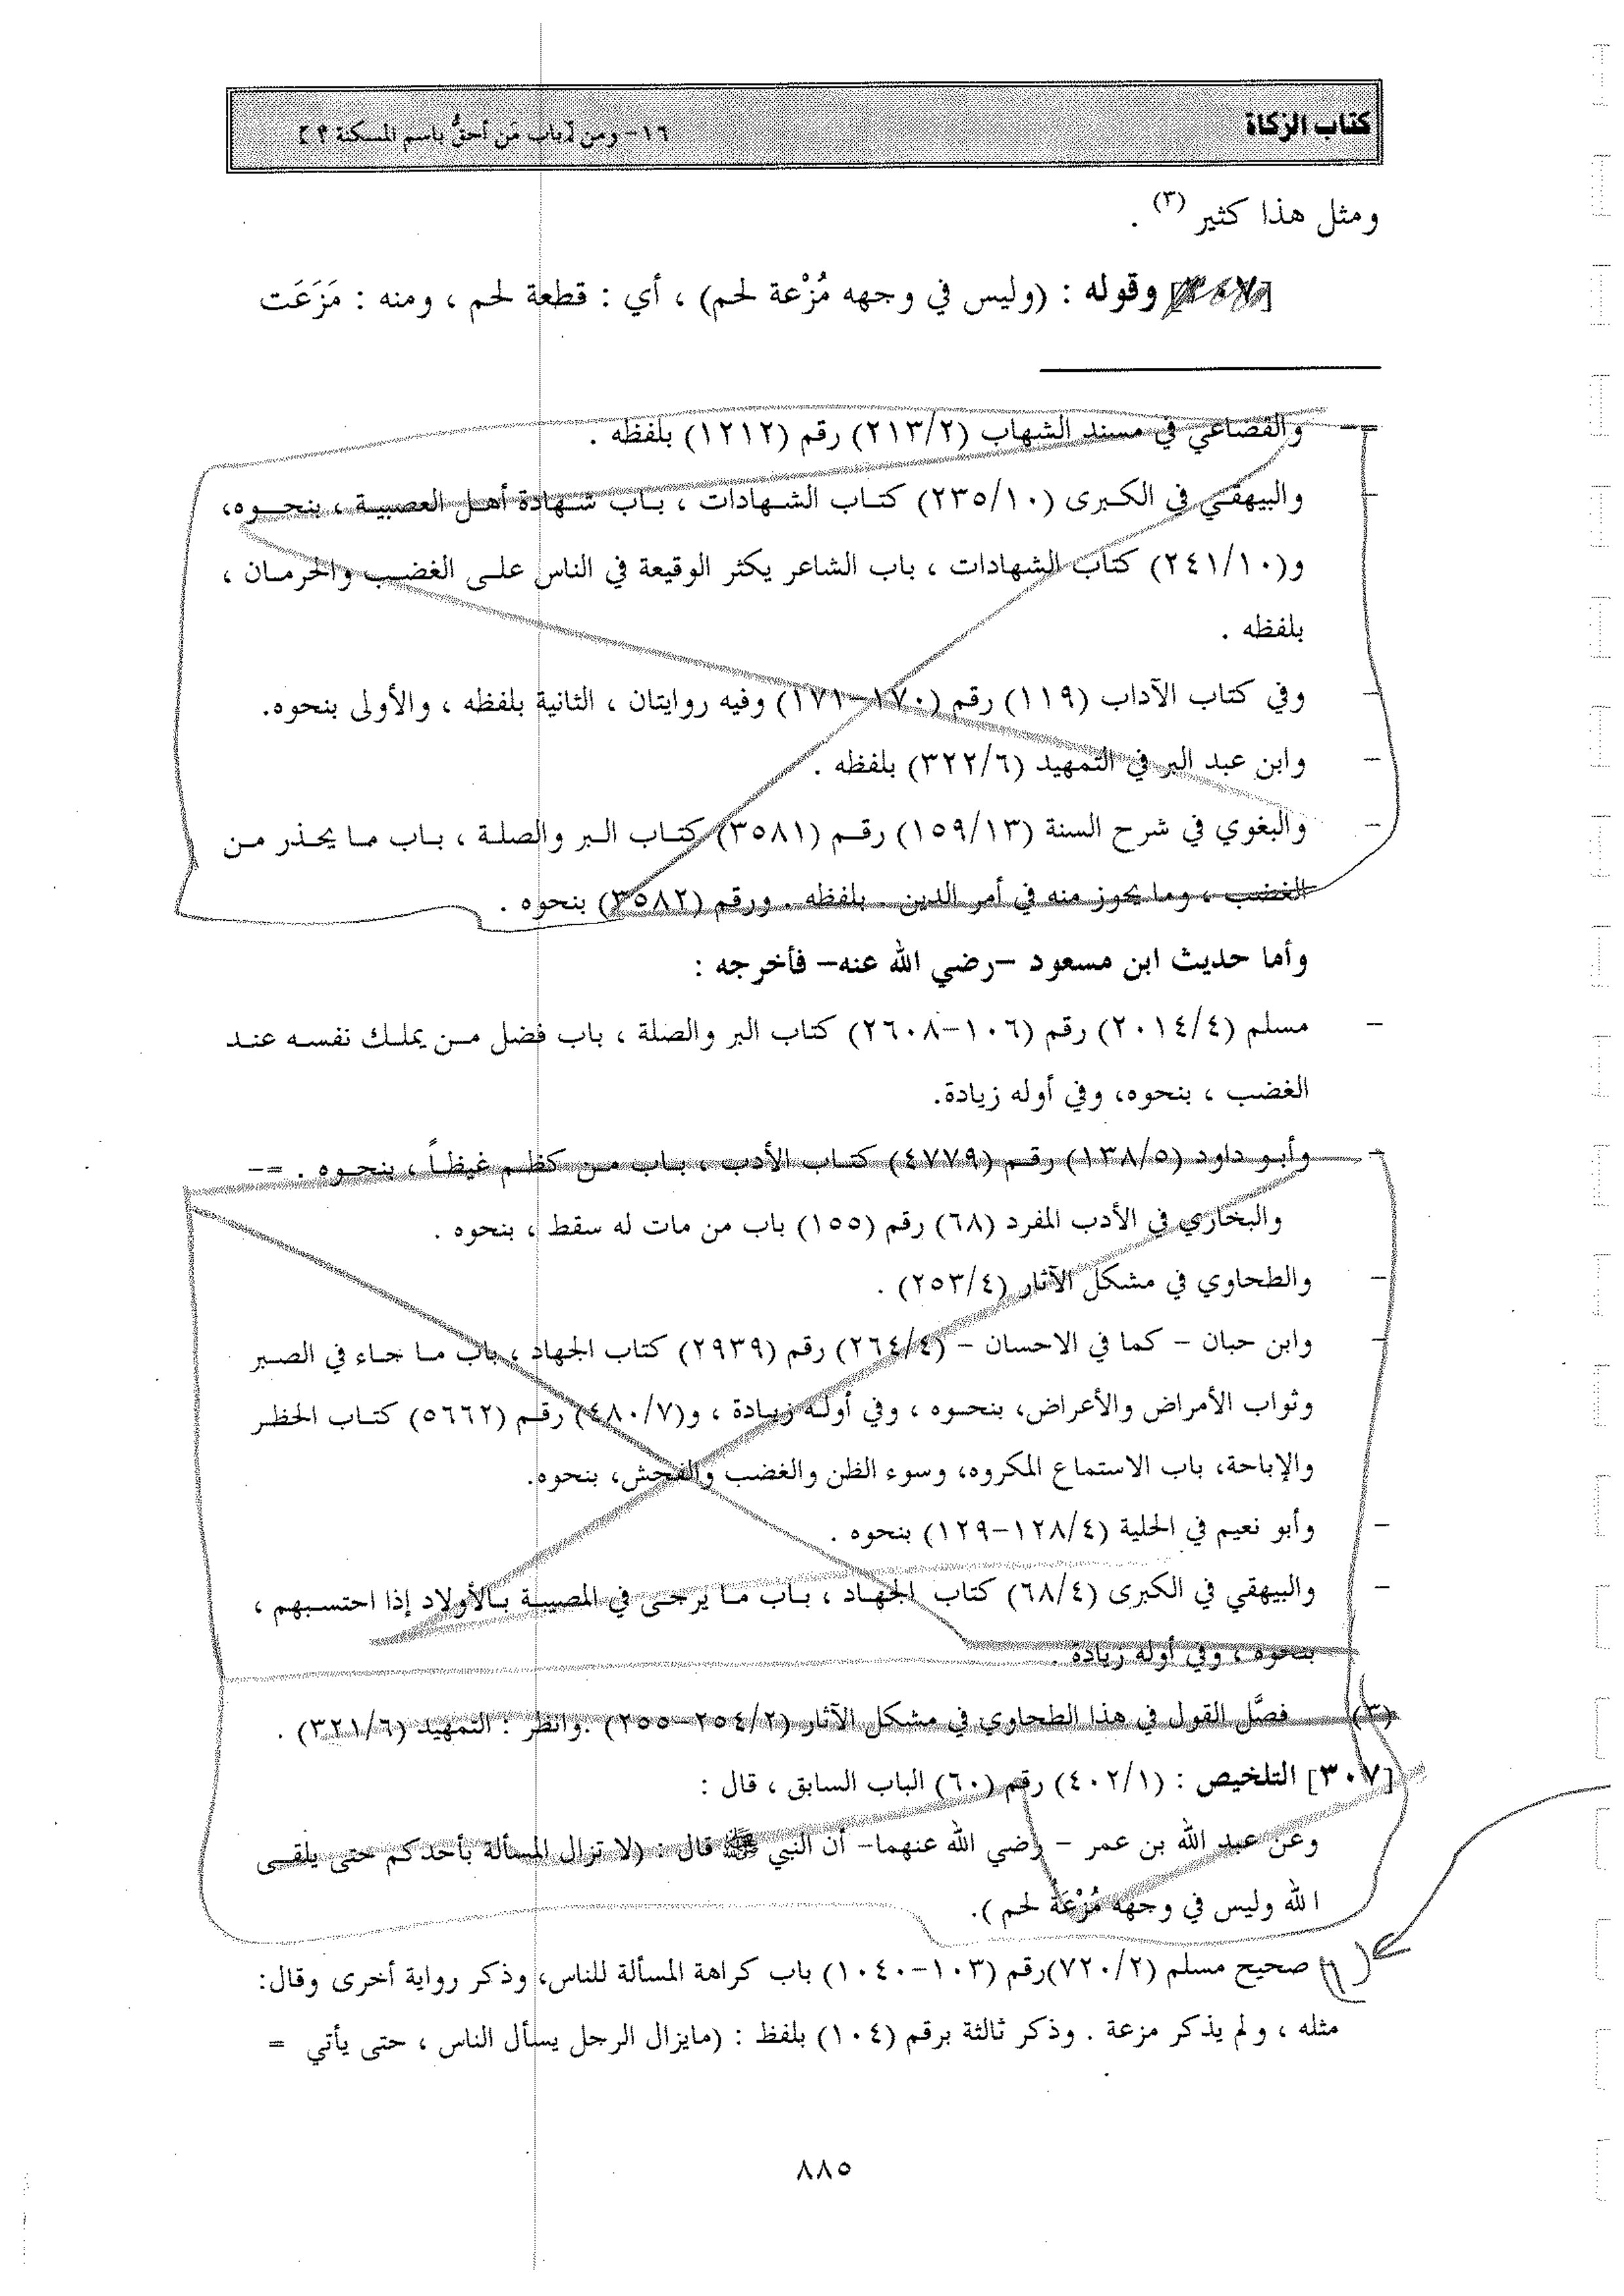 كتاب الزكاة
١٦- ومن [باب مَن أحقُّ باسم المسكنة ؟ ]
ومثل هذا كثير (٣) .
[٣٠٧] وقوله : (وليس في وجهه مُزْعة لحم) ، أي : قطعة لحم ، ومنه : مَزَعَت
=- والقضاعي في مسند الشهاب (٢١٣/٢) رقم (١٢١٢) بلفظه .
- والبيهقي في الكبرى (٢٣٥/١٠) كتاب الشهادات ، باب شهادة أهل العصبية ، بنحوه،
و(٢٤١/١٠) كتاب الشهادات ، باب الشاعر يكثر الوقيعة في الناس على الغضب والحرمان ،
بلفظه .
- وفي كتاب الآداب (١١٩) رقم (١٧٠-١٧١) وفيه روايتان ، الثانية بلفظه ، والأولى بنحوه.
- وابن عبد البر في التمهيد (٣٢٢/٦) بلفظه .
- والبغوي في شرح السنة (١٥٩/١٣) رقم (٣٥٨١) كتاب البر والصلة ، باب ما يحذر من
الغضب ، وما يجوز منه في أمر الدين . بلفظه . ورقم (٣٥٨٢) بنحوه .
وأما حديث ابن مسعود -رضي الله عنه- فأخرجه :
- مسلم (٢٠١٤/٤) رقم (١٠٦-٢٦٠٨) كتاب البر والصلة ، باب فضل من يملك نفسه عند
الغضب ، بنحوه، وفي أوله زيادة.
- وأبو داود (١٣٨/٥) رقم (٤٧٧٩) كتاب الأدب ، باب من كظم غيظاً ، بنحوه . =-
والبخاري في الأدب المفرد (٦٨) رقم (١٥٥) باب من مات له سقط ، بنحوه .
- والطحاوي في مشكل الآثار (٢٥٣/٤) .
- وابن حبان - كما في الاحسان - (٢٦٤/٤) رقم (٢٩٣٩) كتاب الجهاد ، باب ما جاء في الصبر
وثواب الأمراض والأعراض، بنحوه ، وفي أوله زيادة ، و(٤٨٠/٧) رقم (٥٦٦٢) كتاب الحظر
والإباحة، باب الاستماع المكروه، وسوء الظن والغضب والفحش، بنحوه.
- وأبو نعيم في الحلية (١٢٨/٤-١٢٩) بنحوه .
- والبيهقي في الكبرى (٦٨/٤) كتاب الجهاد ، باب ما يرجى في المصيبة بالأولاد إذا احتسبهم ،
بنحوه ، وفي أوله زيادة .
(٣) فصَّل القول في هذا الطحاوي في مشكل الآثار (٢٥٤/٢-٢٥٥) .وانظر : التمهيد (٣٢١/٦) .
[٣٠٧] التلخيص : (٤٠٢/١) رقم (٦٠) الباب السابق ، قال :
وعن عبد الله بن عمر - رضي الله عنهما- أن النبي ﷺ قال : (لا تزال المسألة بأحدكم حتى يلقى
الله وليس في وجهه مُزْعَةُ لحم ).
صحيح مسلم (٧٢٠/٢)رقم (١٠٣-١٠٤٠) باب كراهة المسألة للناس، وذكر رواية أخرى وقال:
مثله ، ولم يذكر مزعة . وذكر ثالثة برقم (١٠٤) بلفظ : (مايزال الرجل يسأل الناس ، حتى يأتي =
٨٨٥